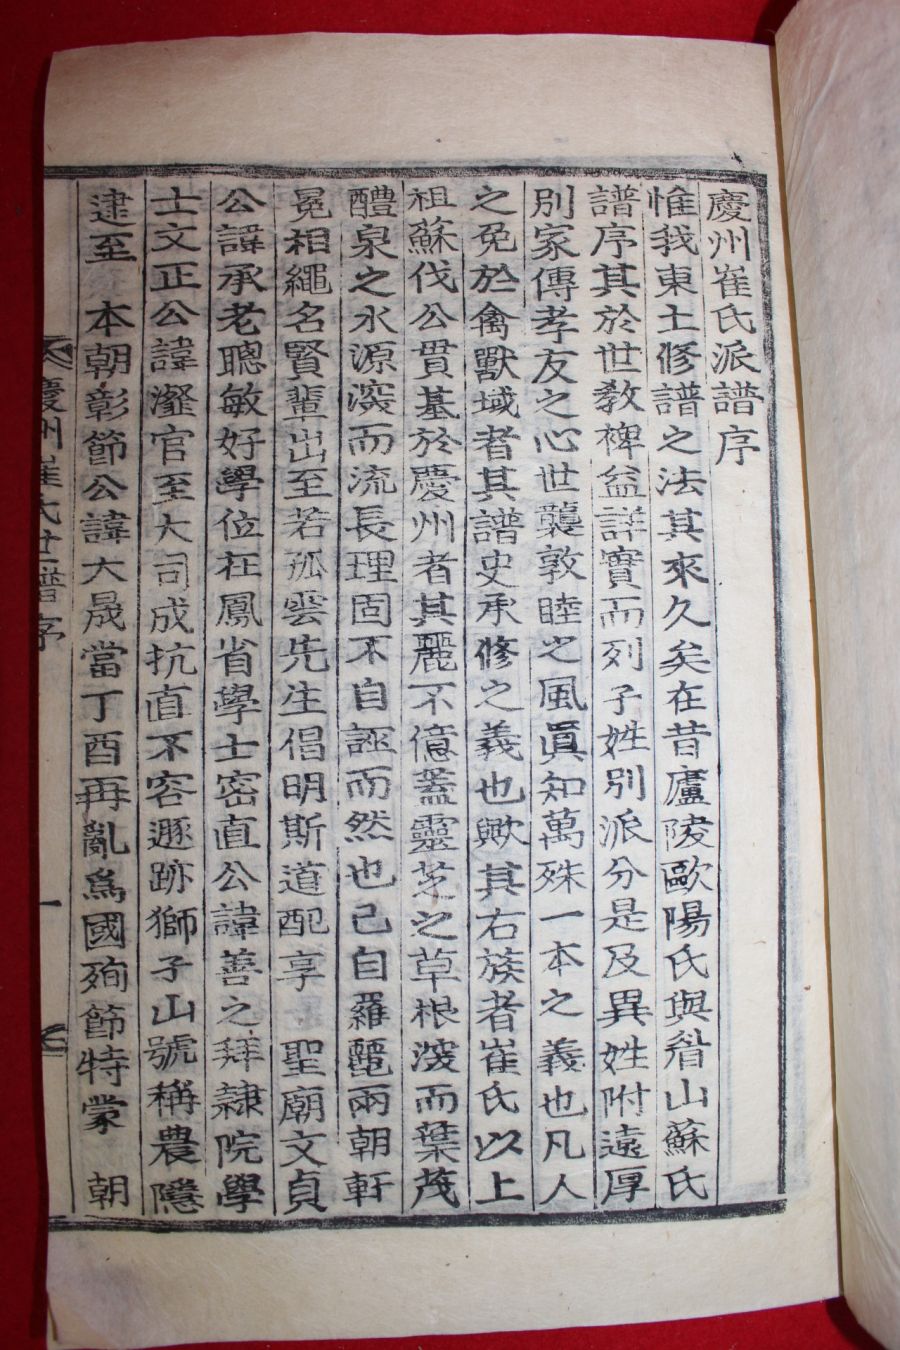 慶州崔氏派譜序
惟我東土修譜之法其來久矣在昔廬陵歐陽氏與眉山蘇氏
譜序其於世敎裨益詳實而列子姓別派分是及異姓附遠厚
別家傳孝友之心世襲敦睦之風眞知萬殊一本之義也凡人
之免於禽獸域者其譜史承修之義也歟其右族者崔氏以上
祖蘇伐公貫基於慶州者其麗不億蓋靈芝之草根深而葉茂
醴泉之水源深而流長理固不自誣而然也已自羅麗兩朝軒
冕相繩名賢輩出至若孤雲先生倡明斯道配享 聖廟文貞
公諱承老聰敏好學位在鳳省學士密直公諱善之拜隷院學
士文正公諱瀣官至大司成抗直不容遯跡獅子山號稱農隱
逮至 本朝彰節公諱大晟當丁酉再亂爲國殉節特蒙 朝
慶州崔氏世譜序
一